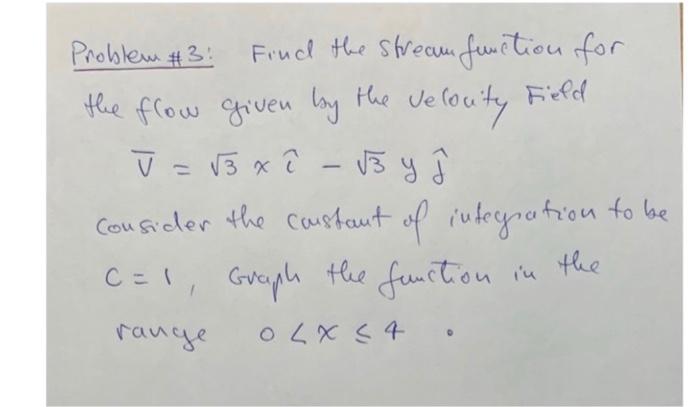 Problem #3: Find the stream function for
the flow given by the velocity Field
V̅ = √3 x î - √3 y ĵ
Consider the constant of integration to be
C = 1, Graph the function in the
range 0 < x ≤ 4 .